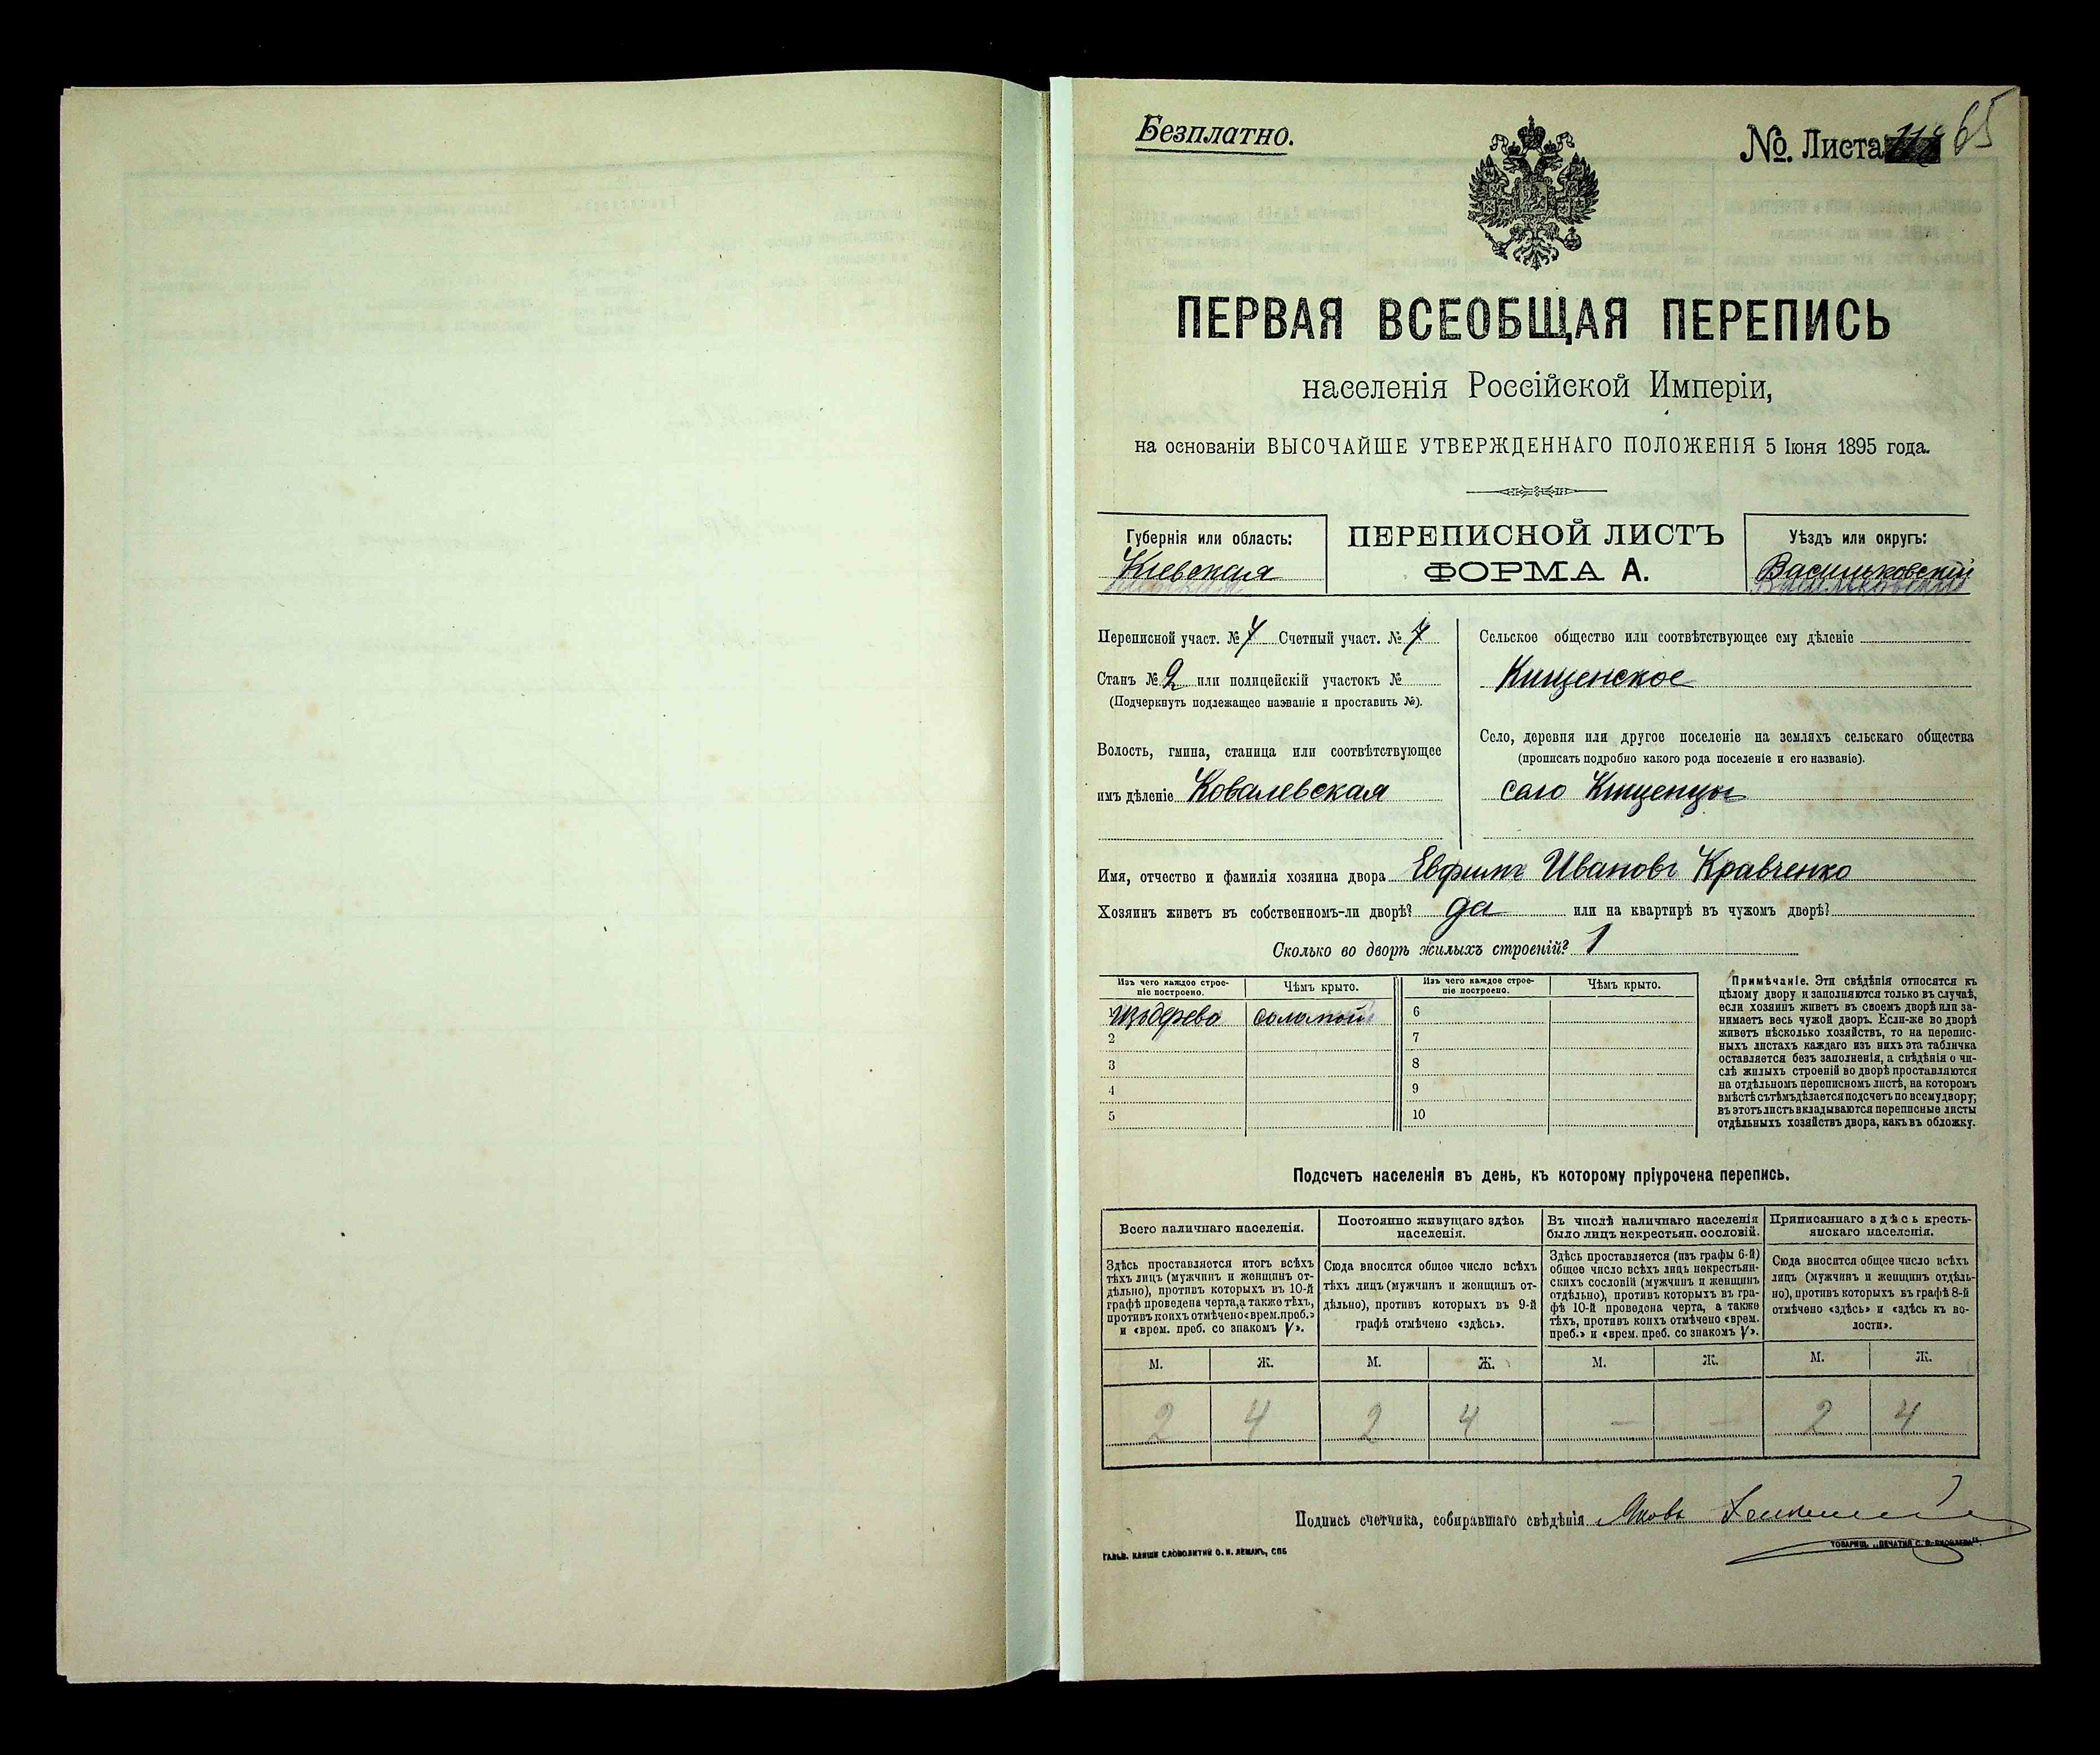 Безплатно.
№. Листа 65
ПЕРВАЯ ВСЕОБЩАЯ ПЕРЕПИСЬ
населенія Россійской Имперіи,
на основаніи ВЫСОЧАЙШЕ УТВЕРЖДЕННАГО ПОЛОЖЕНІЯ 5 Іюня 1895 года.
Губернія или область:
Кіевская
ПЕРЕПИСНОЙ ЛИСТЪ
ФОРМА А.
Уѣздъ или округъ:
Васильковскій
Переписной участ. № 4 Счетный участ. № 7
Станъ № 2 или полицейскій участокъ №
(Подчеркнуть подлежащее названіе и проставить №).
Волость, гмина, станица или соотвѣтствующее
имъ дѣленіе Ковалевская
Сельское общество или соотвѣтствующее ему дѣленіе
Кищенское
Село, деревня или другое поселеніе на земляхъ сельскаго общества
(прописать подробно какого рода поселеніе и его названіе).
село Кищенцы
Имя, отчество и фамилія хозяина двора Евфимъ Ивановъ Кравченко
Хозяинъ живетъ въ собственномъ-ли дворѣ? да или на квартирѣ въ чужомъ дворѣ?
Сколько во дворѣ жилыхъ строеній? 1
Изъ чего каждое строе-
ніе построено.
Чѣмъ крыто.
Изъ чего каждое строе-
ніе построено.
Чѣмъ крыто.
1 Изъ дерева соломой 6
2 7
3 8
4 9
5 10
Примѣчаніе. Эти свѣдѣнія относятся къ
цѣлому двору и заполняются только въ случаѣ,
если хозяинъ живетъ въ своемъ дворѣ или за-
нимаетъ весь чужой дворъ. Если-же во дворѣ
живетъ нѣсколько хозяйствъ, то на перепис-
ныхъ листахъ каждаго изъ нихъ эта табличка
оставляется безъ заполненія, а свѣдѣнія о чи-
слѣ жилыхъ строеній во дворѣ проставляются
на отдѣльномъ переписномъ листѣ, на которомъ
вмѣстѣ съ тѣмъ дѣлается подсчетъ по всему двору;
въ этотъ листъ вкладываются переписные листы
отдѣльныхъ хозяйствъ двора, какъ въ обложку.
Подсчетъ населенія въ день, къ которому пріурочена перепись.
Всего наличнаго населенія.
Здѣсь проставляется итогъ всѣхъ
тѣхъ лицъ (мужчинъ и женщинъ от-
дѣльно), противъ которыхъ въ 10-й
графѣ проведена черта, а также тѣхъ,
противъ коихъ отмѣчено «врем. преб.»
и «врем. преб. со знакомъ V».
Постоянно живущаго здѣсь
населенія.
Сюда вносится общее число всѣхъ
тѣхъ лицъ (мужчинъ и женщинъ от-
дѣльно), противъ которыхъ въ 9-й
графѣ отмѣчено «здѣсь».
Въ числѣ наличнаго населенія
было лицъ некрестьян. сословій.
Здѣсь проставляется (изъ графы 6-й)
общее число всѣхъ лицъ некрестьян-
скихъ сословій (мужчинъ и женщинъ
отдѣльно), противъ которыхъ въ гра-
фѣ 10-й проведена черта, а также
тѣхъ, противъ коихъ отмѣчено «врем.
преб.» и «врем. преб. со знакомъ V».
Приписаннаго здѣсь кресть-
янскаго населенія.
Сюда вносится общее число всѣхъ
лицъ (мужчинъ и женщинъ отдѣль-
но), противъ которыхъ въ графѣ 8-й
отмѣчено «здѣсь» и «здѣсь къ во-
лости».
М. Ж. М. Ж. М. Ж. М. Ж.
2 4 2 4 — — 2 4
Подпись счетчика, собиравшаго свѣдѣнія Яковъ
ГАЛЬВ. КЛИШЕ СЛОВОЛИТНИ О. И. ЛЕМАНЪ, СПБ
ТОВАРИЩ. „ПЕЧАТНЯ С. П. ЯКОВЛЕВА".